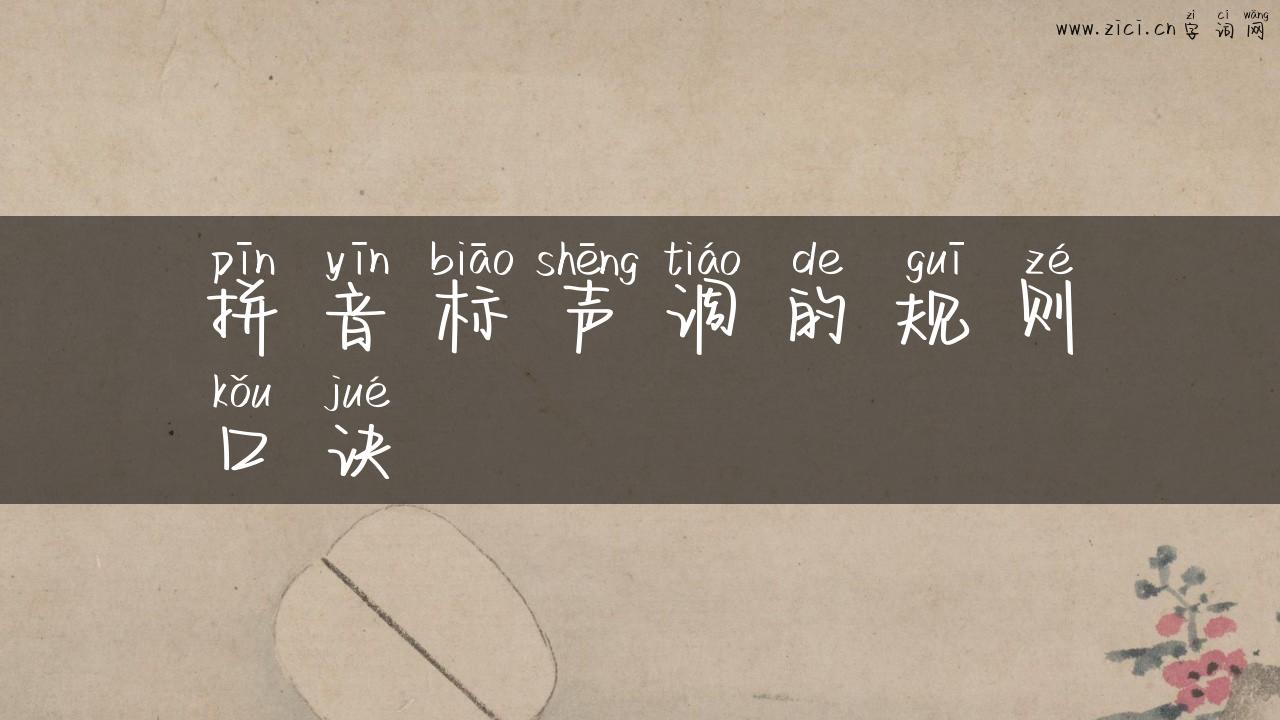 zì cí wǎng
www.zici.cn 字词网
pīn yīn biāo shēng tiáo de guī zé
拼音标声调的规则
kǒu jué
口诀